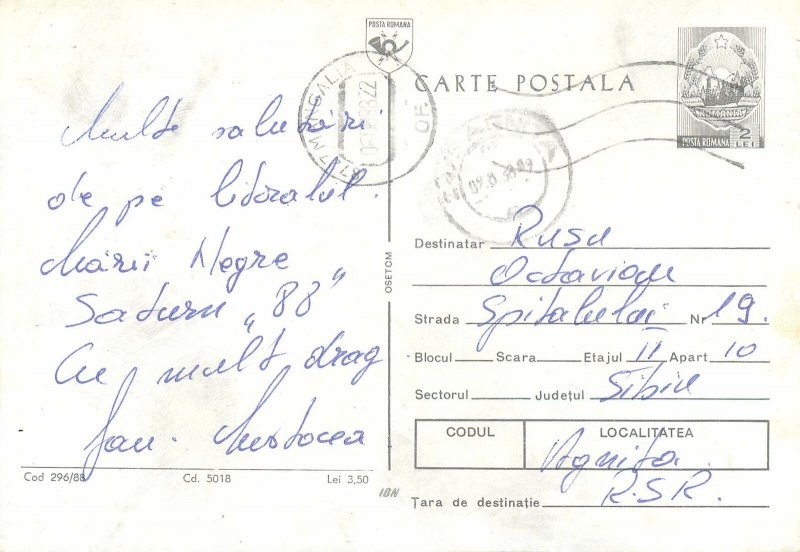 POSTA ROMANA
CARTE POSTALA
ROMANIA
POSTA ROMANA 2 LEI
MANGALIA
Multe salutări
de pe litoralul
Mării Negre
Saturn „88”
Cu mult drag
fam.
OSETCM
Destinatar Rusu
Octavian
Strada Spitalului Nr 19.
Blocul Scara Etajul II Apart 10
Sectorul Județul Sibiu
CODUL LOCALITATEA
Agnita
R.S.R.
Țara de destinație
Cod 296/88 Cd. 5018 Lei 3,50
IBN